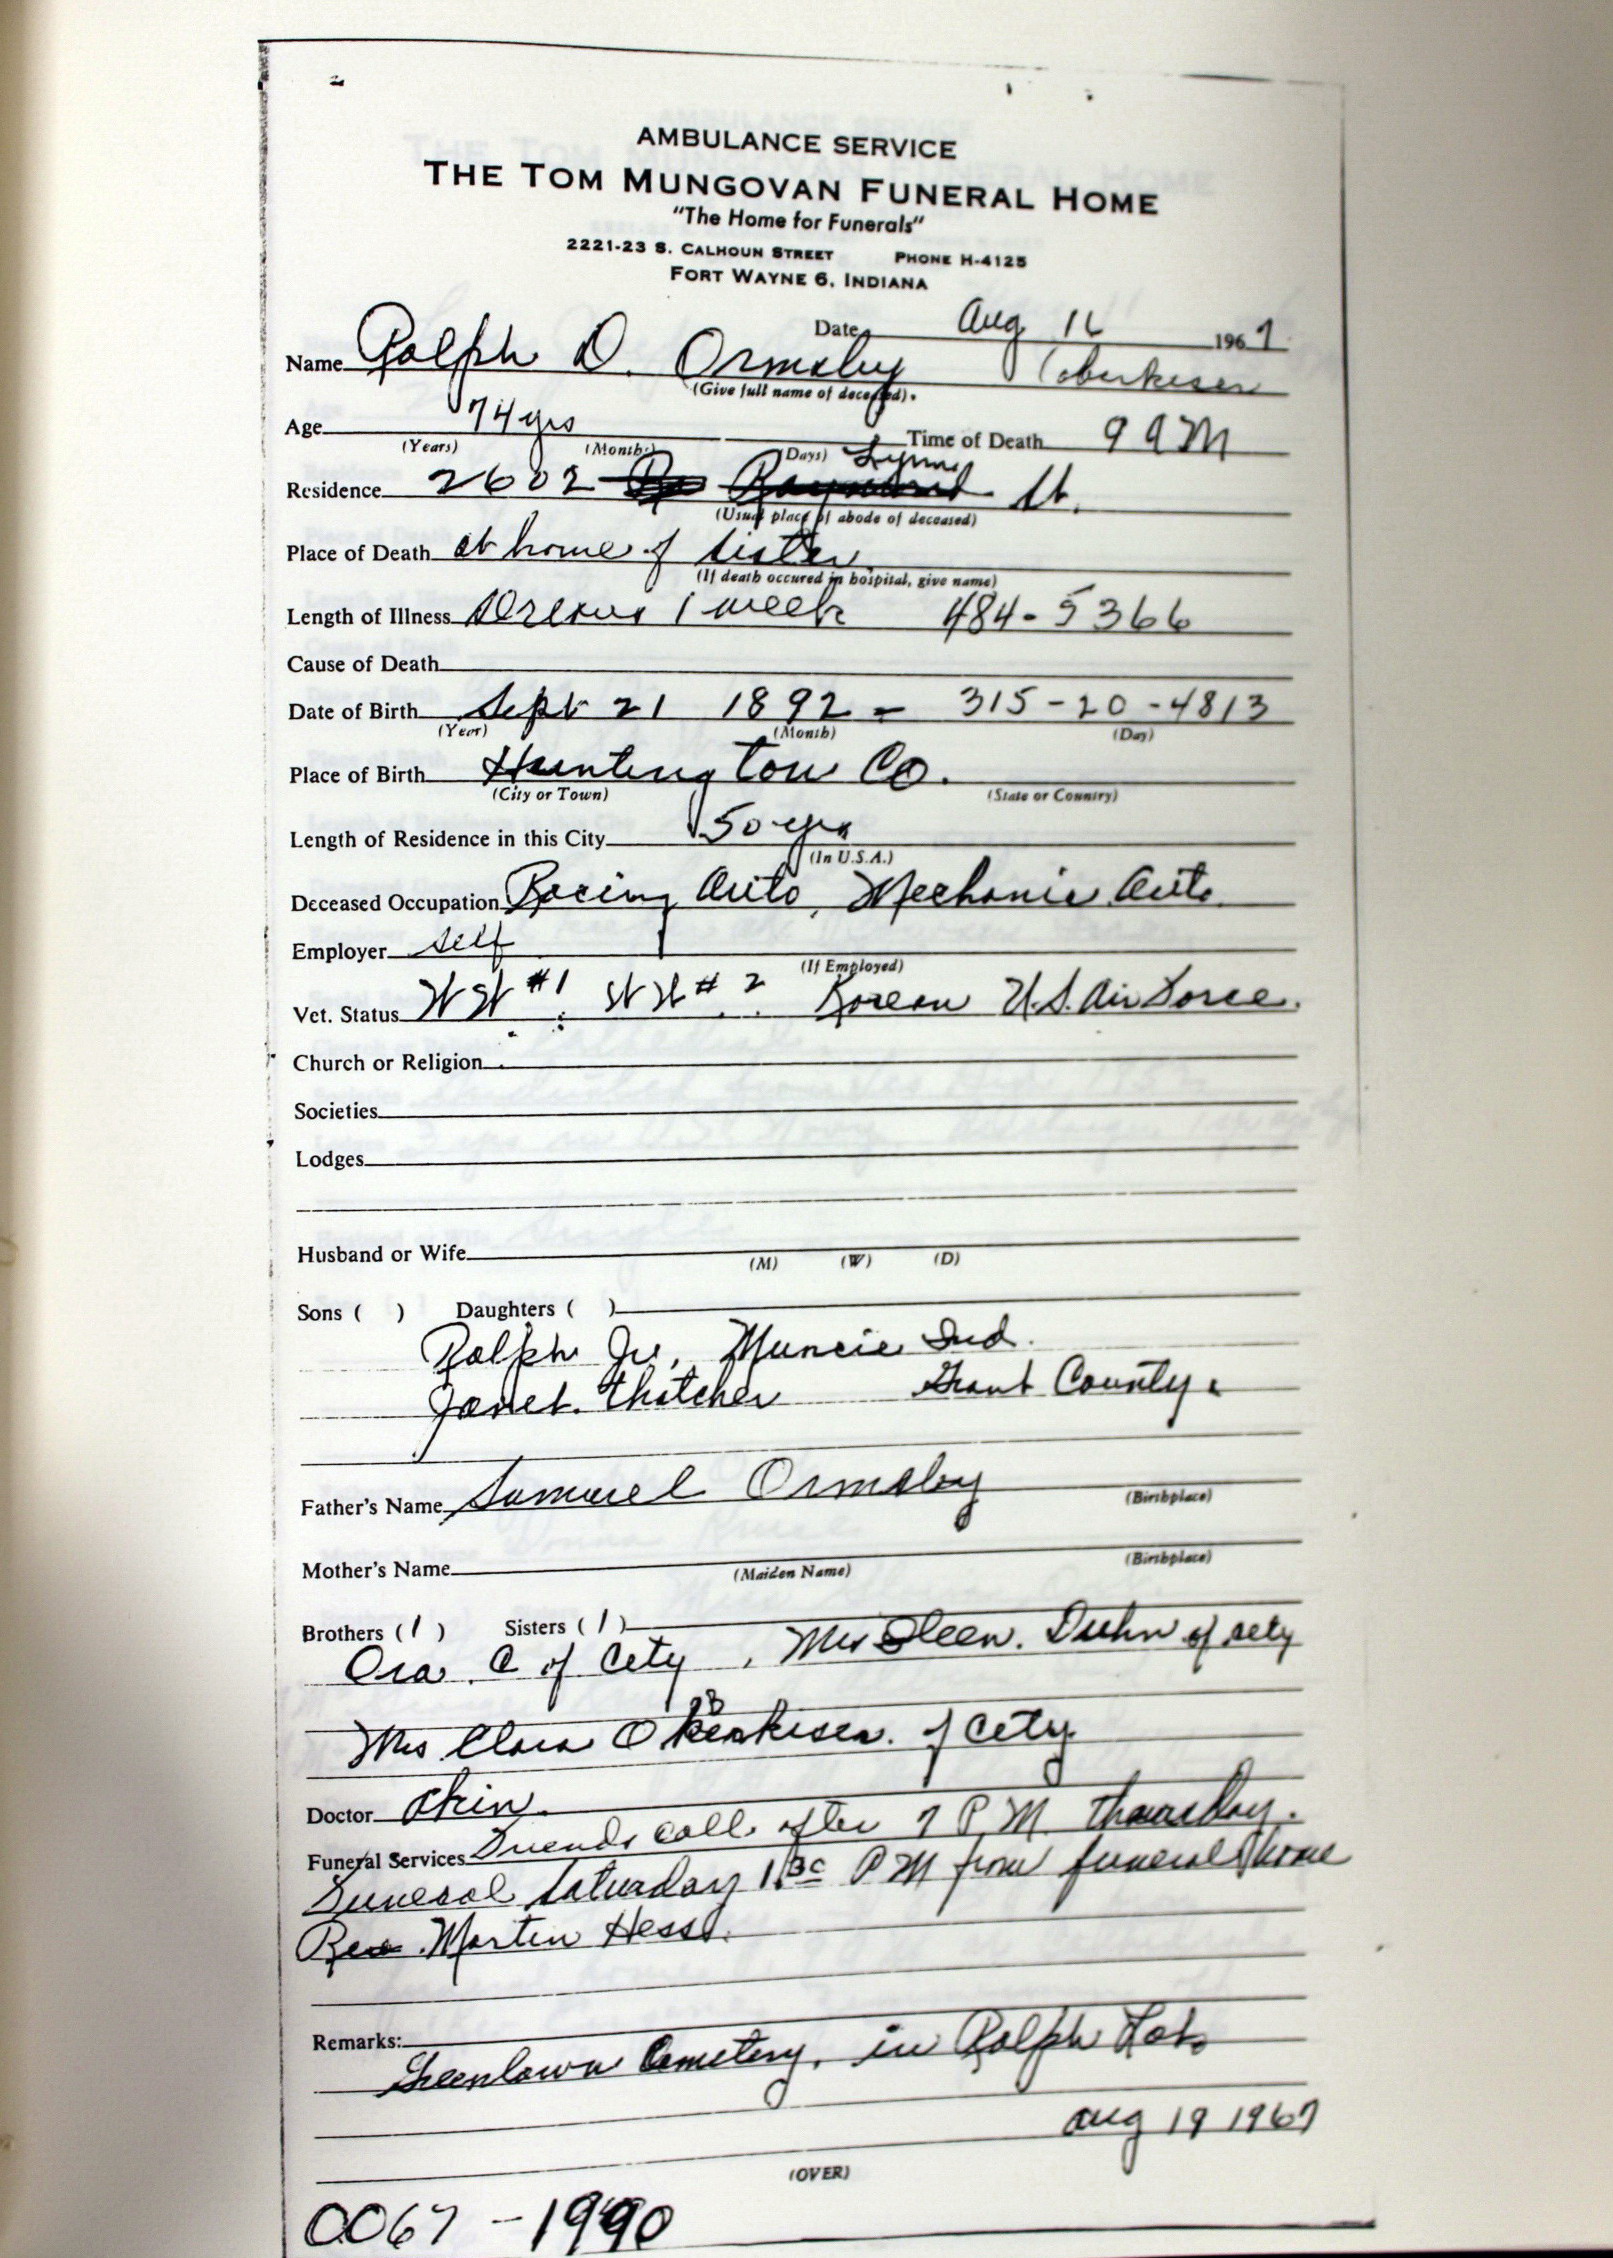 AMBULANCE SERVICE
THE TOM MUNGOVAN FUNERAL HOME
"The Home for Funerals"
2221-23 S. CALHOUN STREET PHONE H-4125
FORT WAYNE 6, INDIANA
Date Aug 16 1967
Name Ralph D. Ormsby
(Give full name of deceased).
Age 74 yrs Time of Death 9 A M
(Years) (Months) (Days)
Residence 2602 Lynn St.
(Usual place of abode of deceased)
Place of Death at home of sister
(If death occured in hospital, give name)
Length of Illness 1 week 484-5366
Cause of Death
Date of Birth Sept 21 1892 - 315-20-4813
(Year) (Month) (Day)
Place of Birth Huntington Co.
(City or Town) (State or Country)
Length of Residence in this City 50 yrs
(In U.S.A.)
Deceased Occupation Racing Auto, Mechanic Auto
Employer self
(If Employed)
Vet. Status WW #1, WW #2 Korean U.S. Air Force.
Church or Religion
Societies
Lodges
Husband or Wife
(M) (W) (D)
Sons ( ) Daughters ( )
Ralph Jr, Muncie Ind.
Janet Thatcher Grant County.
Father's Name Samuel Ormsby
(Birthplace)
Mother's Name
(Maiden Name) (Birthplace)
Brothers (1) Sisters (1)
Ora C of City, Mrs Duhn of City
Mrs Clara of City
Doctor
Funeral Services Friends call after 7 P M Thursday.
Funeral Saturday 1:30 P M from funeral home
Rev. Martin Hess.
Remarks:
Greenlawn Cemetery, in Ralph Lot
Aug 19 1967
(OVER)
0067 - 1990